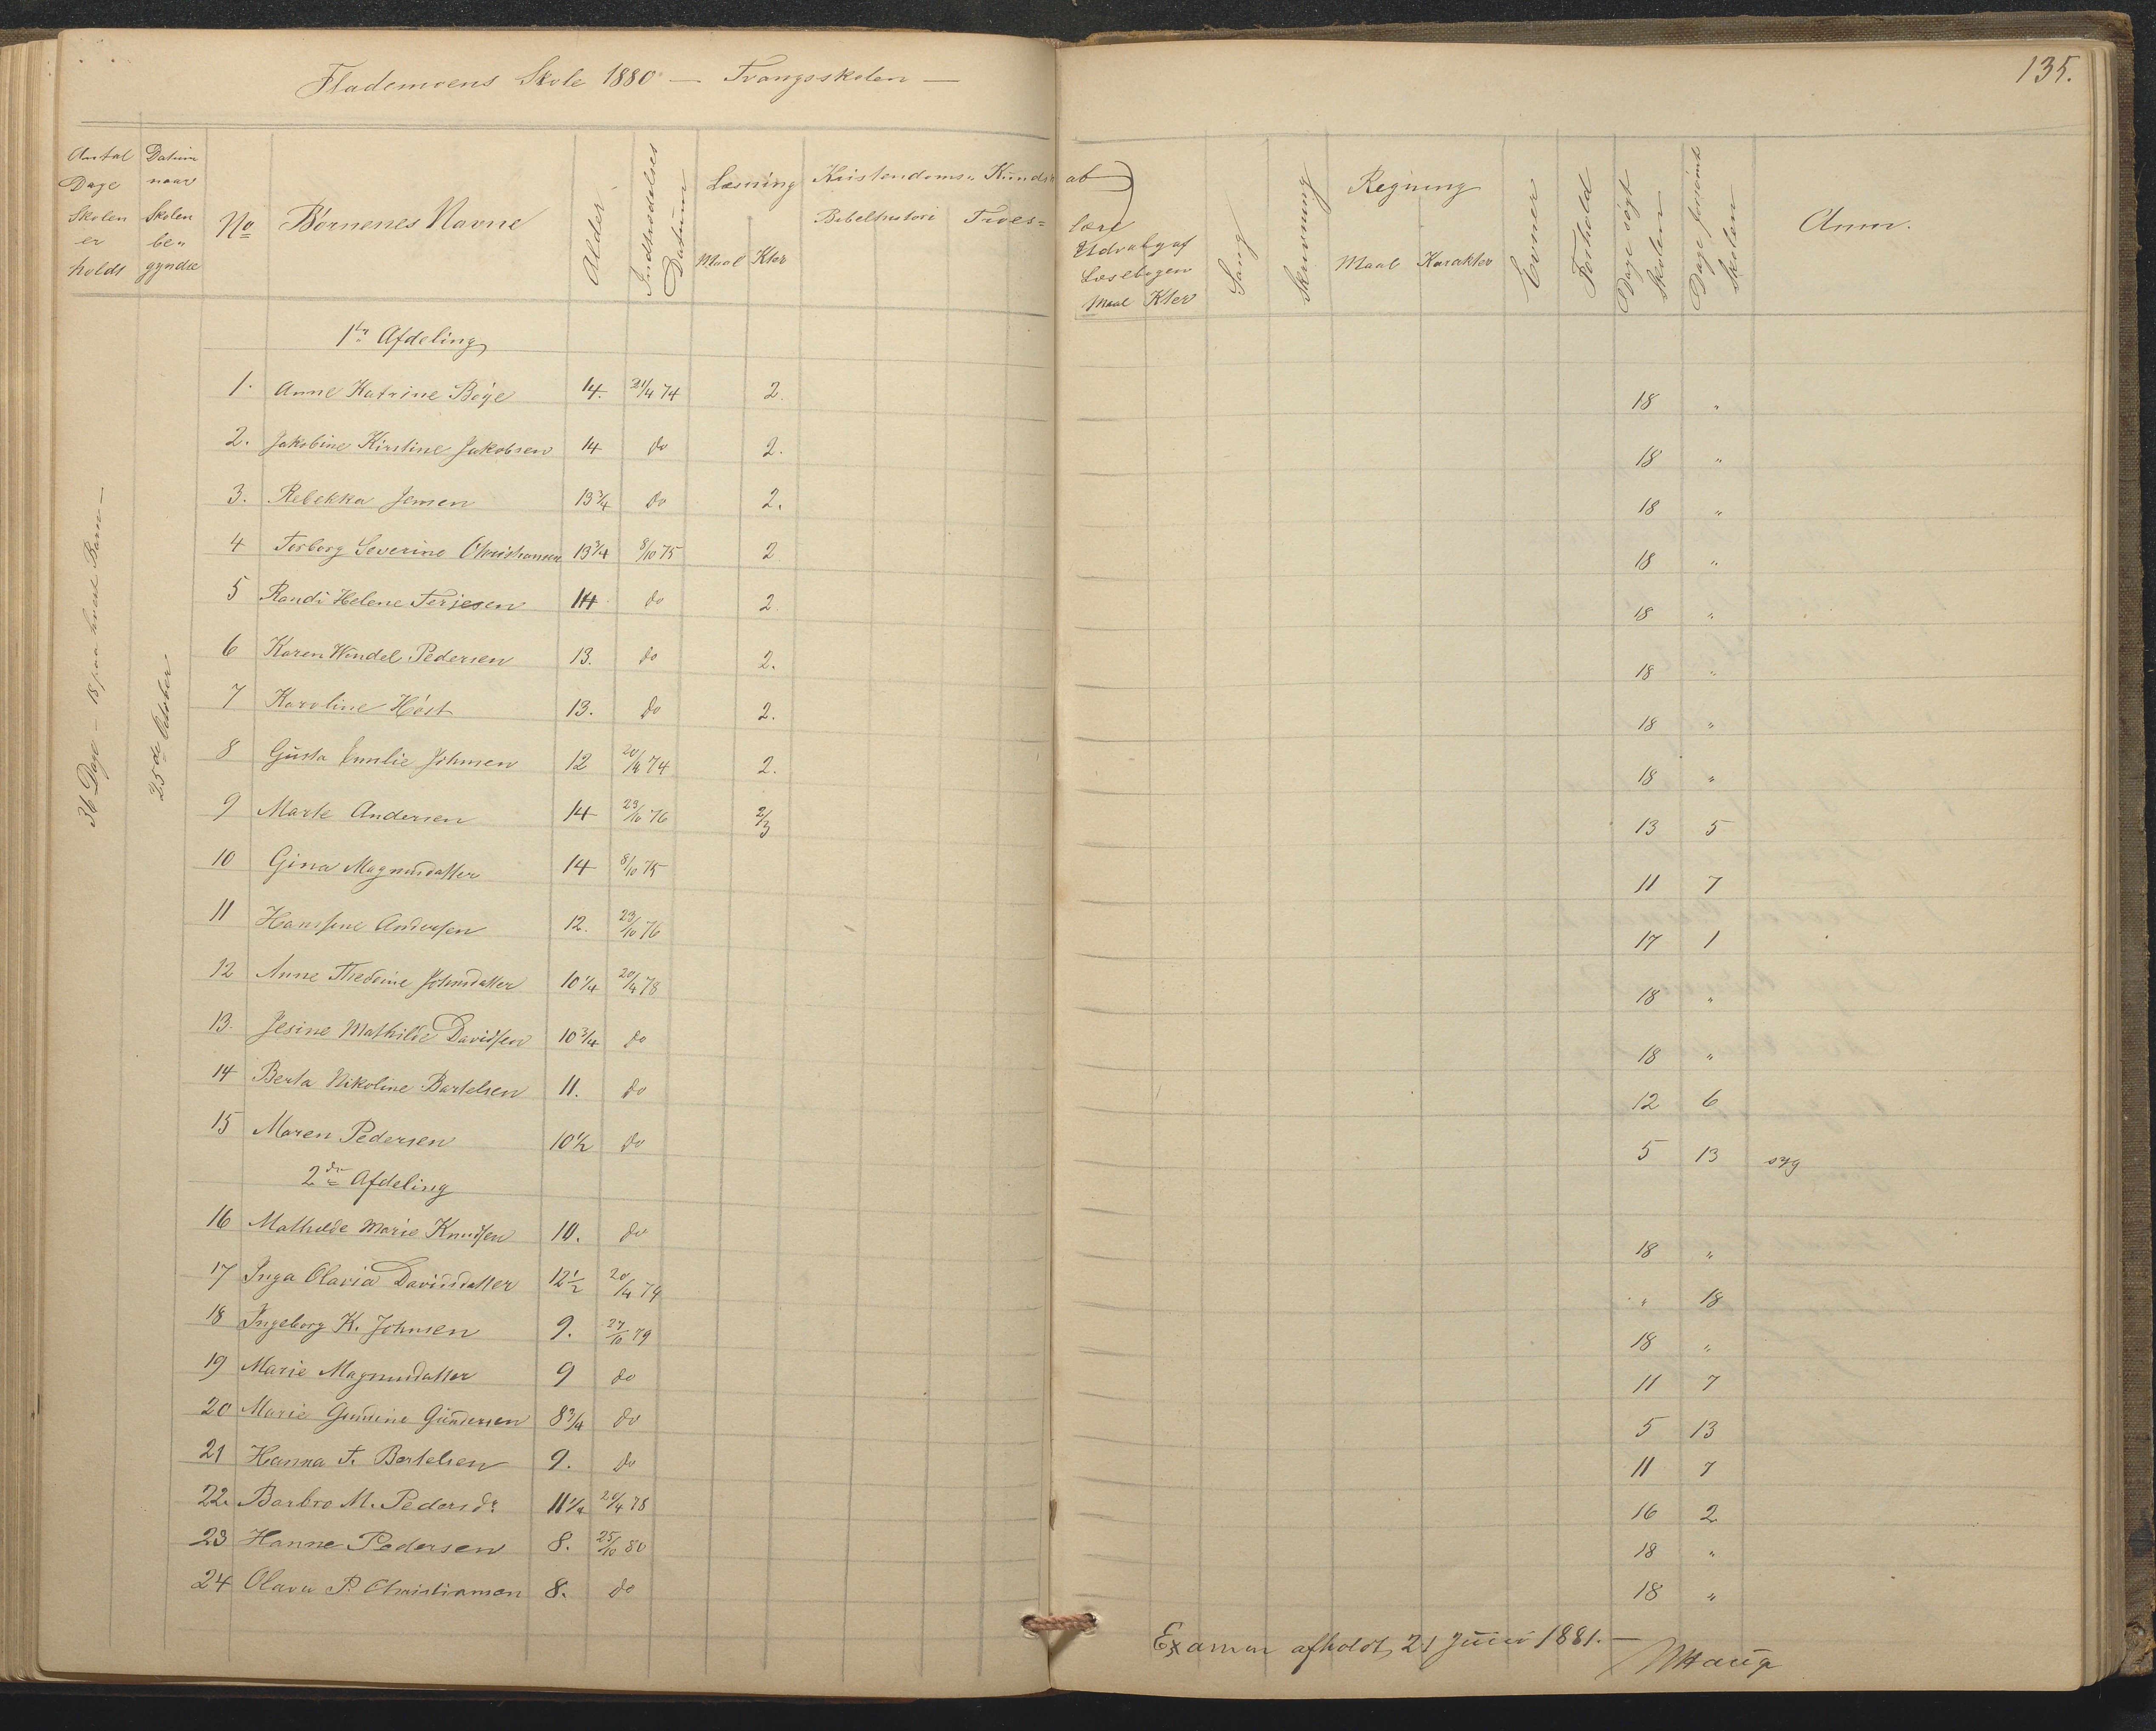 Flademoens Skole 1880 — Tvangsskolen —
135.
Antal Dage Skolen er holdt
Datum naar Skolen be" gyndte
No
Børnenes Navne
Alder
Indtrædelses Datum
Læsning
Maal Kter
Kristendoms" Kundskab
Bibelhistori
Troeslære
Udvalg af Læsebogen
Maal Kter
Sang
Skrivning
Regning
Maal Karakter
Evner
Forhold
Dage søgt Skolen
Dage forsømt Skolen
Anm.
36 Dage – 18 paa hvert Barn —
25de October
1ste Afdeling
1. Anne Katrine Boye 14. 21/4 74 2. 18 "
2. Jakobine Kirstine Jakobsen 14 do 2. 18 "
3. Rebekka Jensen 13 3/4 do 2. 18 "
4 Torborg Severine Christiansen 13 3/4 8/10 75 2 18 "
5 Randi Helene Terjesen 14 do 2. 18 "
6 Karen Wendel Pedersen 13. do 2. 18 "
7 Karoline Høst 13. do 2. 18 "
8 Gusta Emilie Johnsen 12 20/4 74 2. 18 "
9 Marte Andersen 14 23/10 76 2/3 13 5
10 Gina Magnusdatter 14 8/10 75 11 7
11 Hansine Andersen 12. 23/10 76 17 1
12 Anne Thedoine Johnsdatter 10 1/4 20/4 78 18 "
13. Jesine Mathilde Davidsen 10 3/4 do 18 "
14 Berta Nikoline Bartelsen 11. do 12 6
15 Maren Pedersen 10 1/2 do 5 13 syg
2den Afdeling
16 Mathilde Marie Knudsen 10. do 18 "
17 Inga Olavia Davidsdatter 12 1/2 20/4 79 " 18
18 Ingeborg K. Johnsen 9. 27/10 79 18 "
19 Marie Magnusdatter 9 do 11 7
20 Marie Gundersen 8 3/4 do 5 13
21 Hanna T. Bertelsen 9. do 11 7
22. Barbro M. Pedersdr 11 1/4 20/4 78 16 2
23 Hanne Pedersen 8. 25/10 80 18 "
24 Olava P. Christiansen 8. do 18 "
Examen afholdt 21 Juni 1881. —
Haug